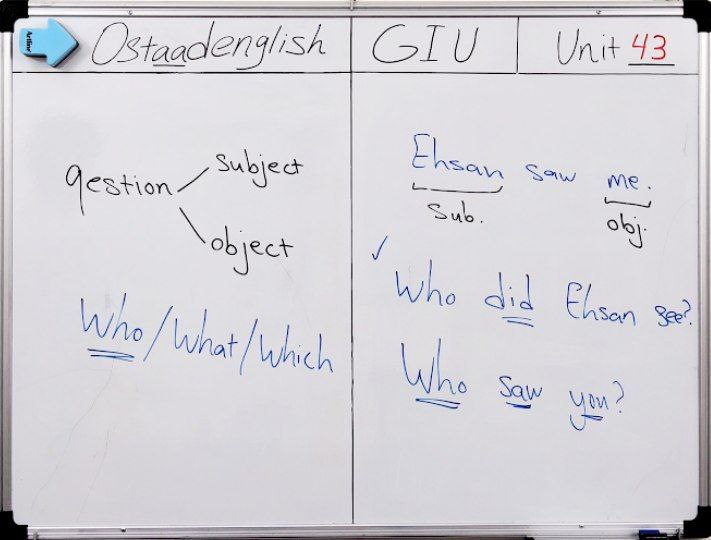 Artline
Ostaadenglish
GIU
Unit 43
qestion
subject
object
Who/What/Which
Ehsan saw me.
Sub.
obj.
✓
Who did Ehsan see?
Who saw you?